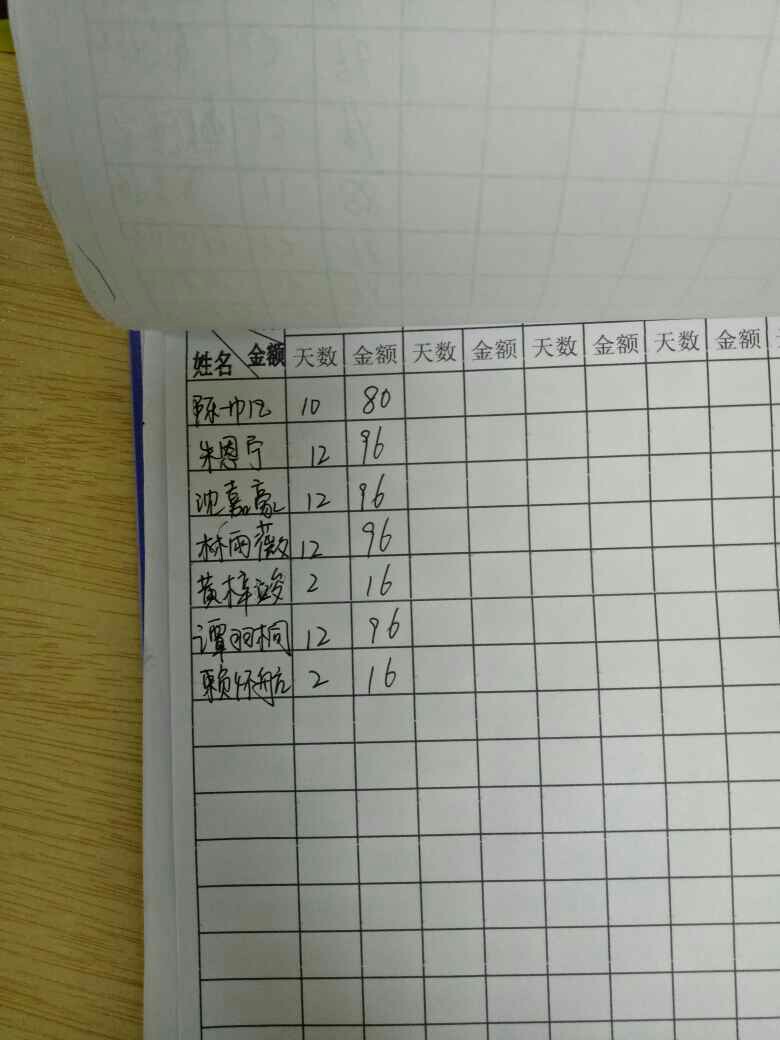 姓名 金额 天数 金额 天数 金额 天数 金额 天数 金额
10 80
朱恩宁 12 96
沈嘉豪 12 96
林雨薇 12 96
黄梓骏 2 16
谭羽桐 12 96
赖怀航 2 16